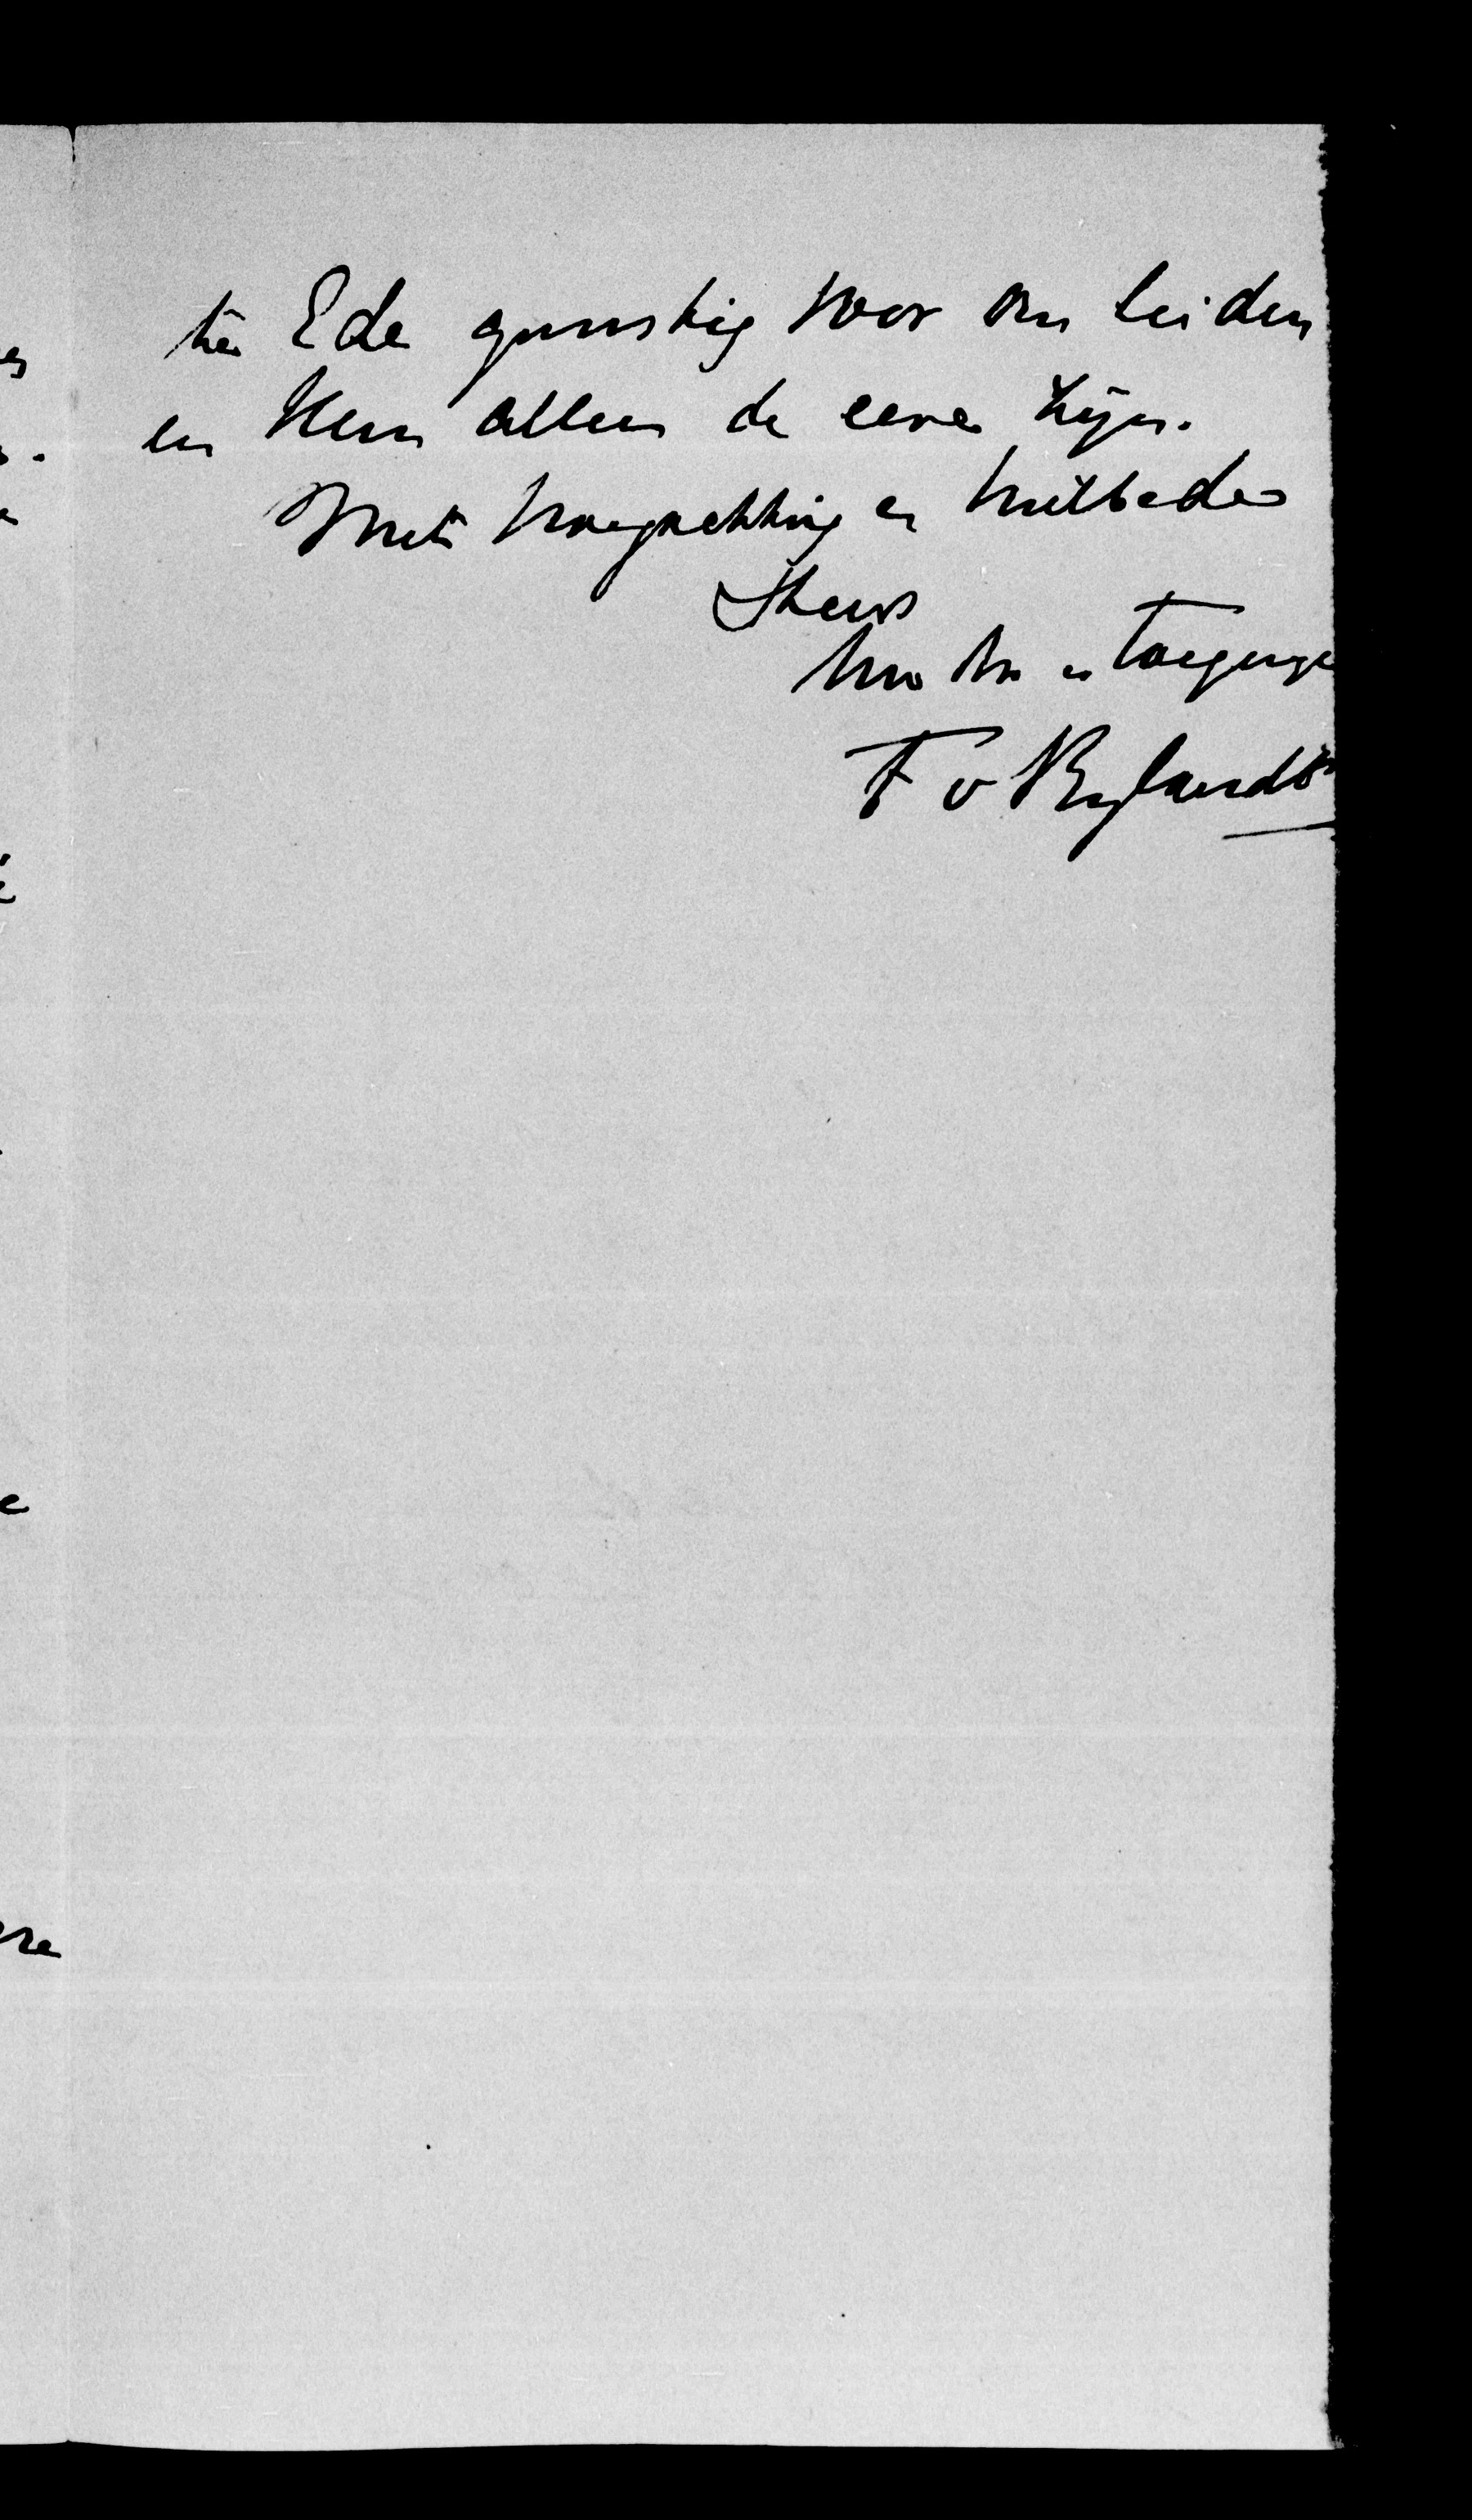 te Ede gunstig voor ons leiden
en Hem alleen de eere zijn.
Met hoogachting en heilbede
Steeds
Uw dw en toegeneg
F v Bylandt